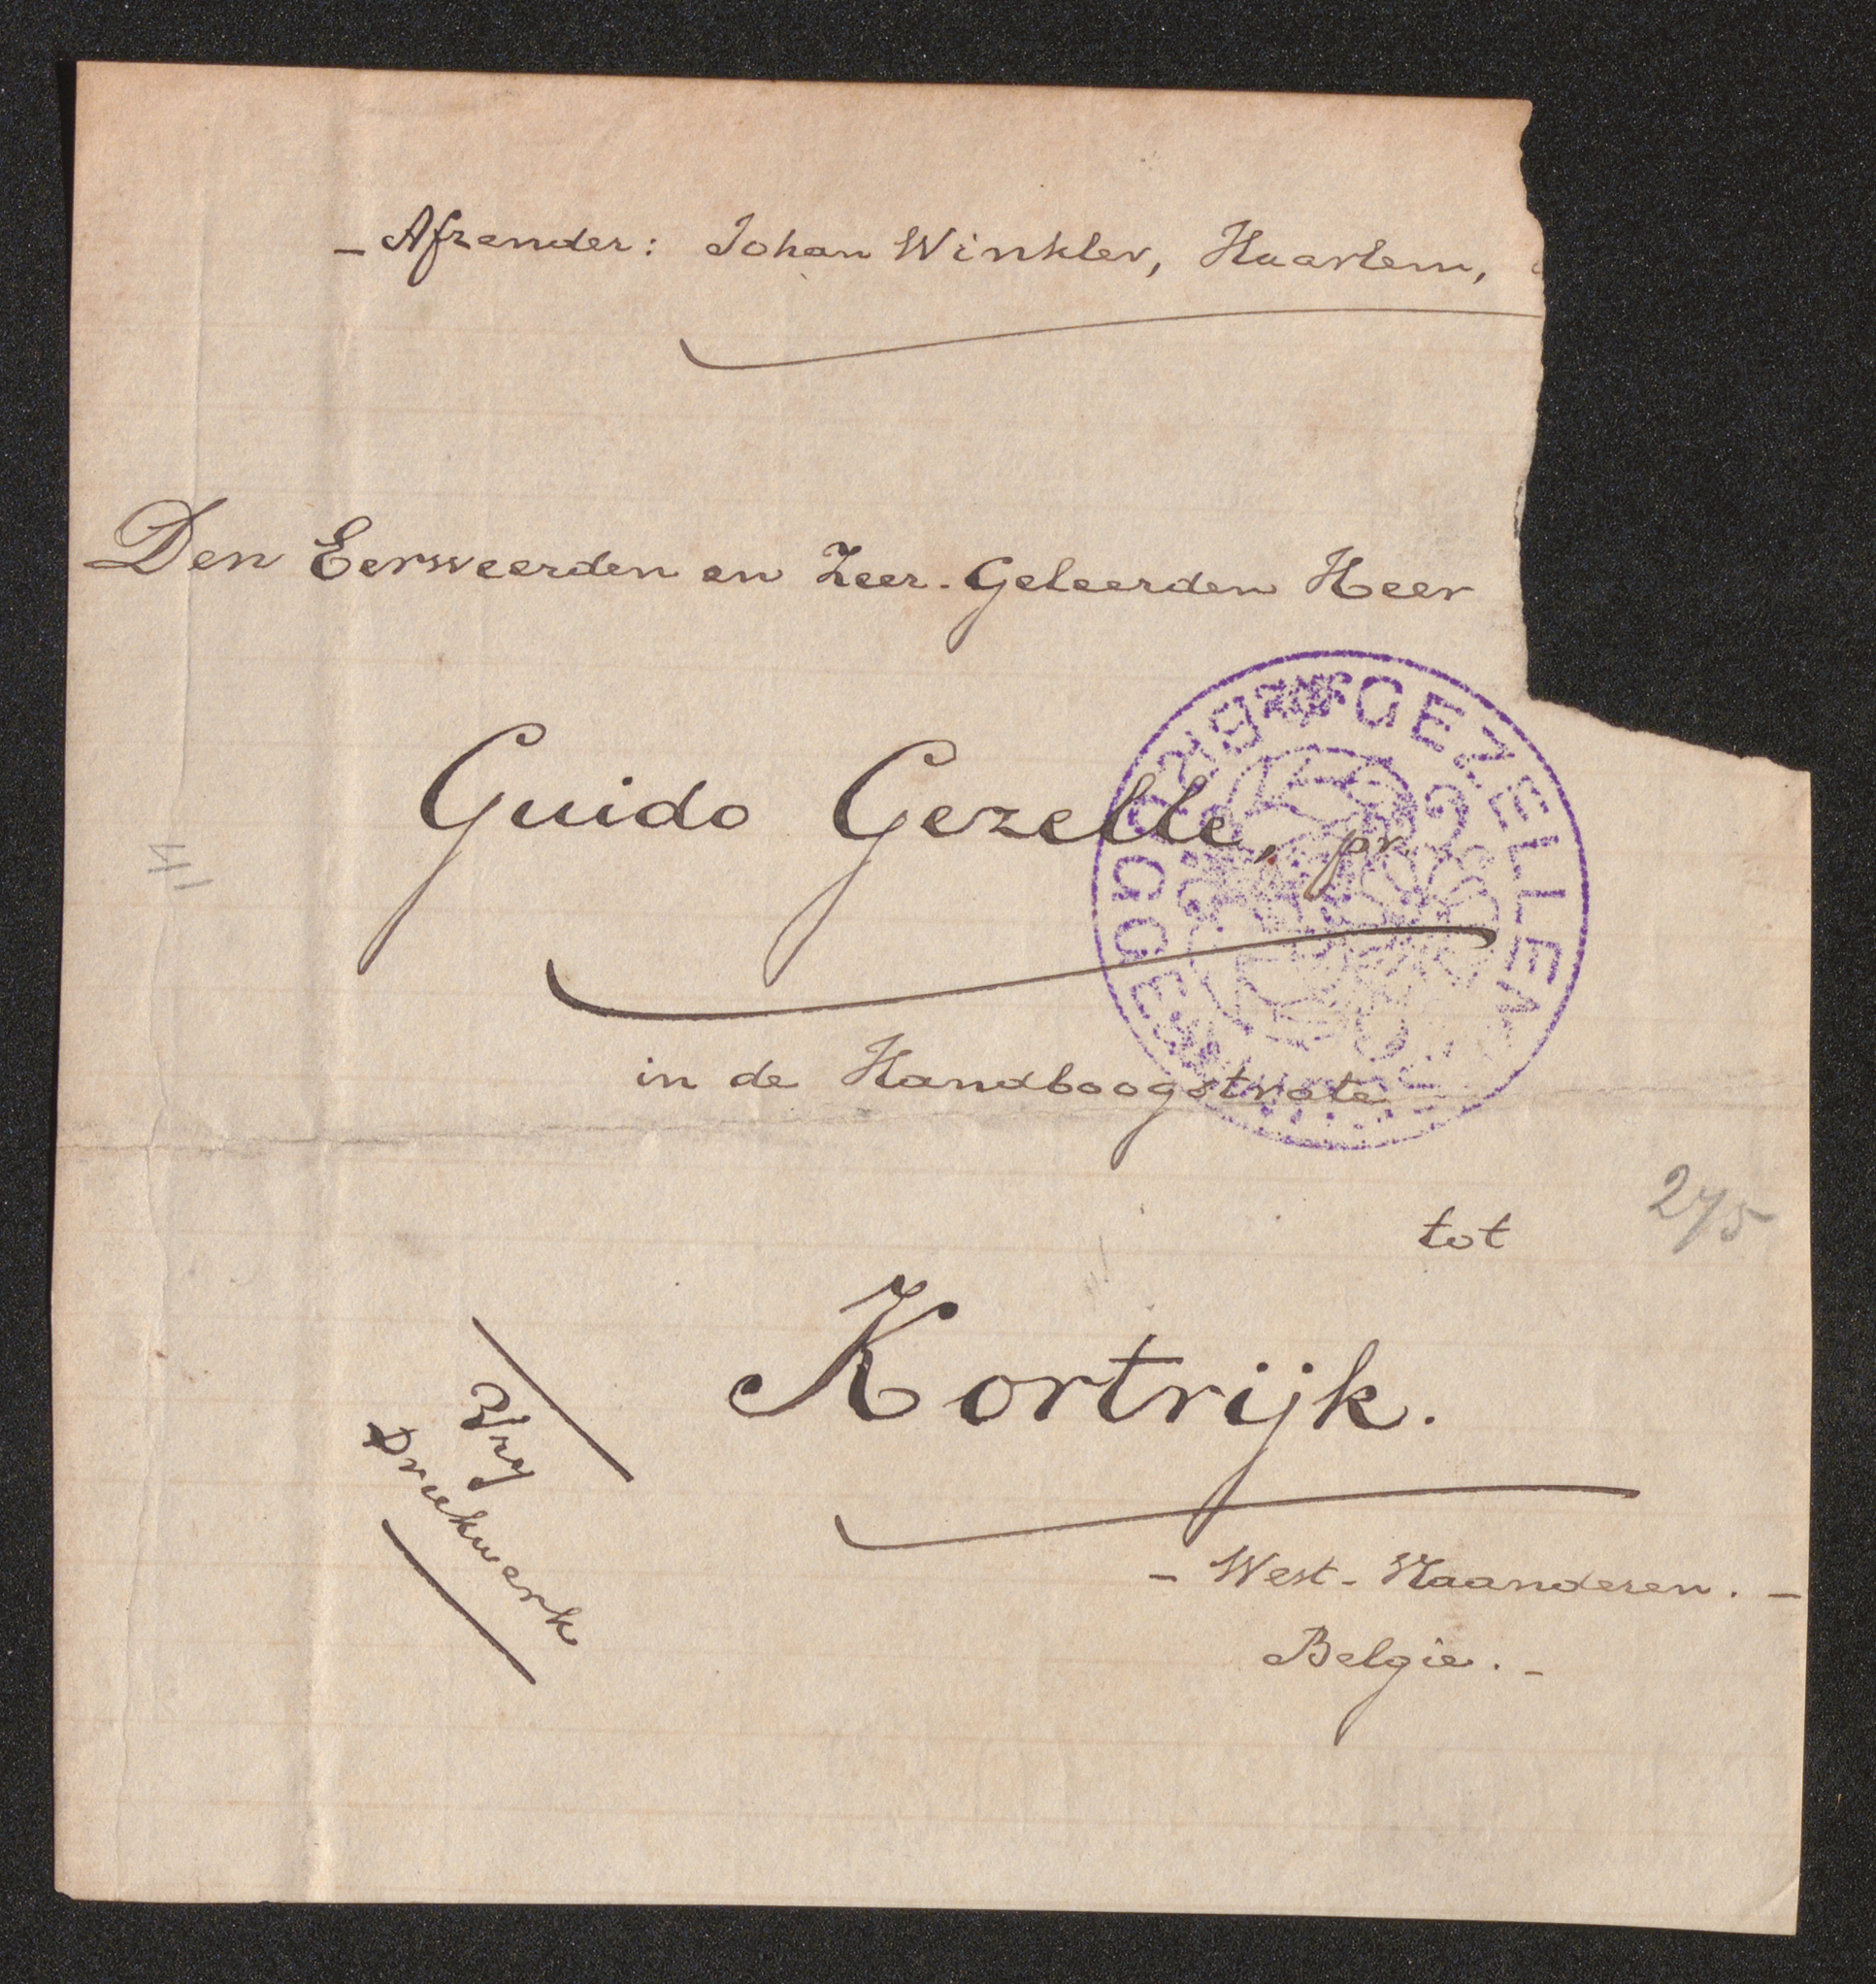 - Afzender: Johan Winkler, Haarlem,
Den Eerweerden en Zeer-Geleerden Heer
Guido Gezelle, pr.
in de Handboogstrate
tot
275
Kortrijk.
- West-Vlaanderen. -
Belgie. -
Vry
Drukwerk